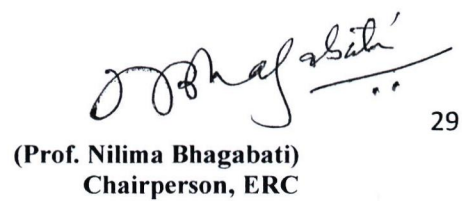 NBhagabati
29
(Prof. Nilima Bhagabati)
Chairperson, ERC